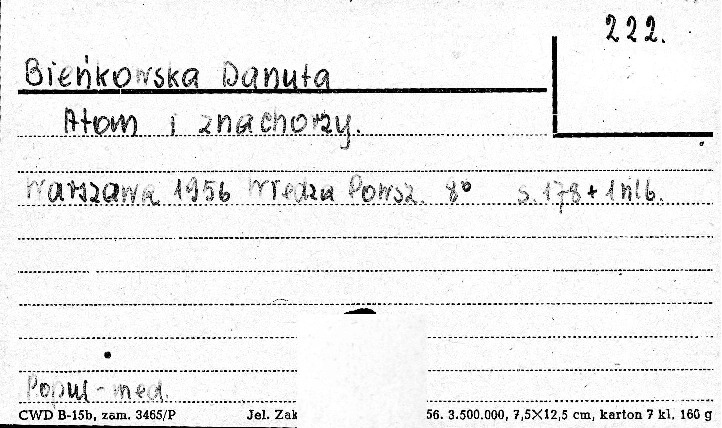 222.
Bieńkowska Danuta
Atom i znachorzy.
Warszawa 1956 Wiedza Powsz. 8° s. 178 + 1 nlb.
Popul-med.
CWD B-15b, zam. 3465/P Jel. Zak 56. 3.500.000, 7,5×12,5 cm, karton 7 kl. 160 g